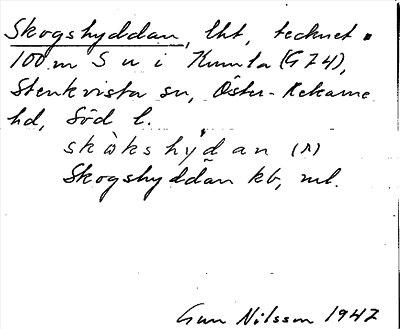 Skogshyddan, lht, tecknet •
100 m S u i Kumla (G 74),
Stenkvista sn, Öster-Rekarne
hd, Söd l.
skòkshỳdan (A)
Skogshyddan kb, ml.
Gun Nilsson 1947